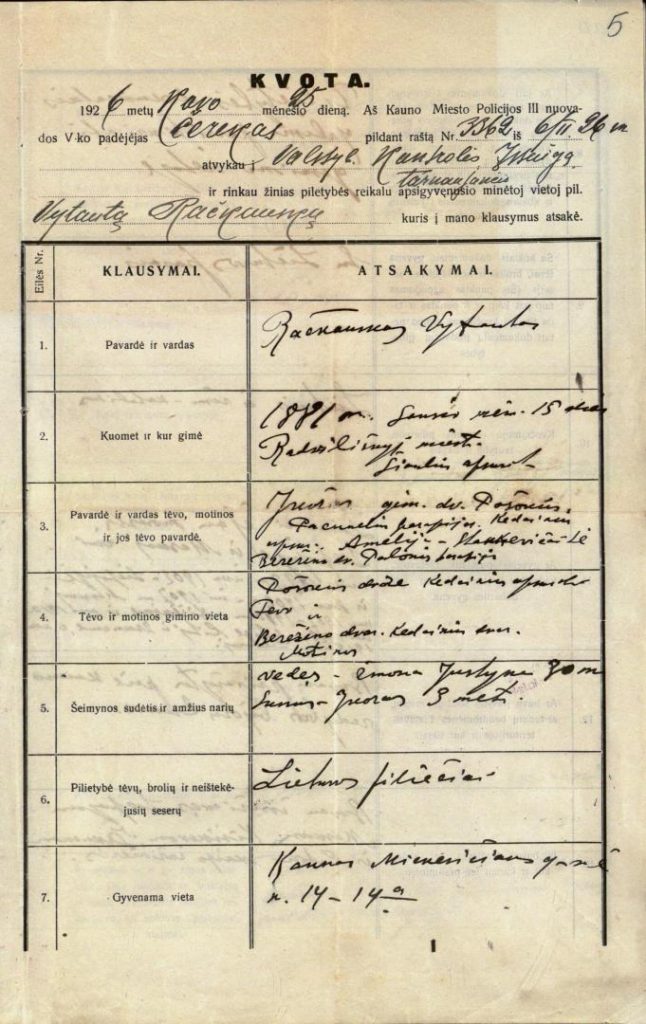 5
KVOTA.
1926 metų Kovo mėnesio 25 dieną. Aš Kauno Miesto Policijos III nuova-
dos V-ko padėjėjas Čerekas pildant raštą Nr. 3362 iš 6/II 26 m
atvykau į Valstyb. Kontrolės Įstaigą
tarnaujančio
ir rinkau žinias piletybės reikalu apsigyvenusio minėtoj vietoj pil.
Vytautą Račkauską kuris į mano klausymus atsakė.
Eilės Nr.
KLAUSYMAI.
ATSAKYMAI.
1.
Pavardė ir vardas
Račkauskas Vytautas
2.
Kuomet ir kur gimė
1881 m. Sausio mėn. 15 d.
Radviliškyj miest.
Šiaulių apskr.
3.
Pavardė ir vardas tėvo, motinos
ir jos tėvo pavardė.
gim. dv.
parapijos Kėdainių
apskr. Amelija - Stankevičaitė
Berežino dv. parapija
4.
Tėvo ir motinos gimino vieta
dvare Kedainių apskr.
Tevo
ir
Berežino dvar. Kedainių
Motinos
5.
Šeimynos sudėtis ir amžius narių
vedęs - žmona Justyna 30 m
Sunus - 3 met.
6.
Pilietybė tėvų, brolių ir neištekė-
jusių seserų
Lietuvos piliečiai
7.
Gyvenama vieta
Kaunas Mickevičiaus g-vė
n. 14 - 14a